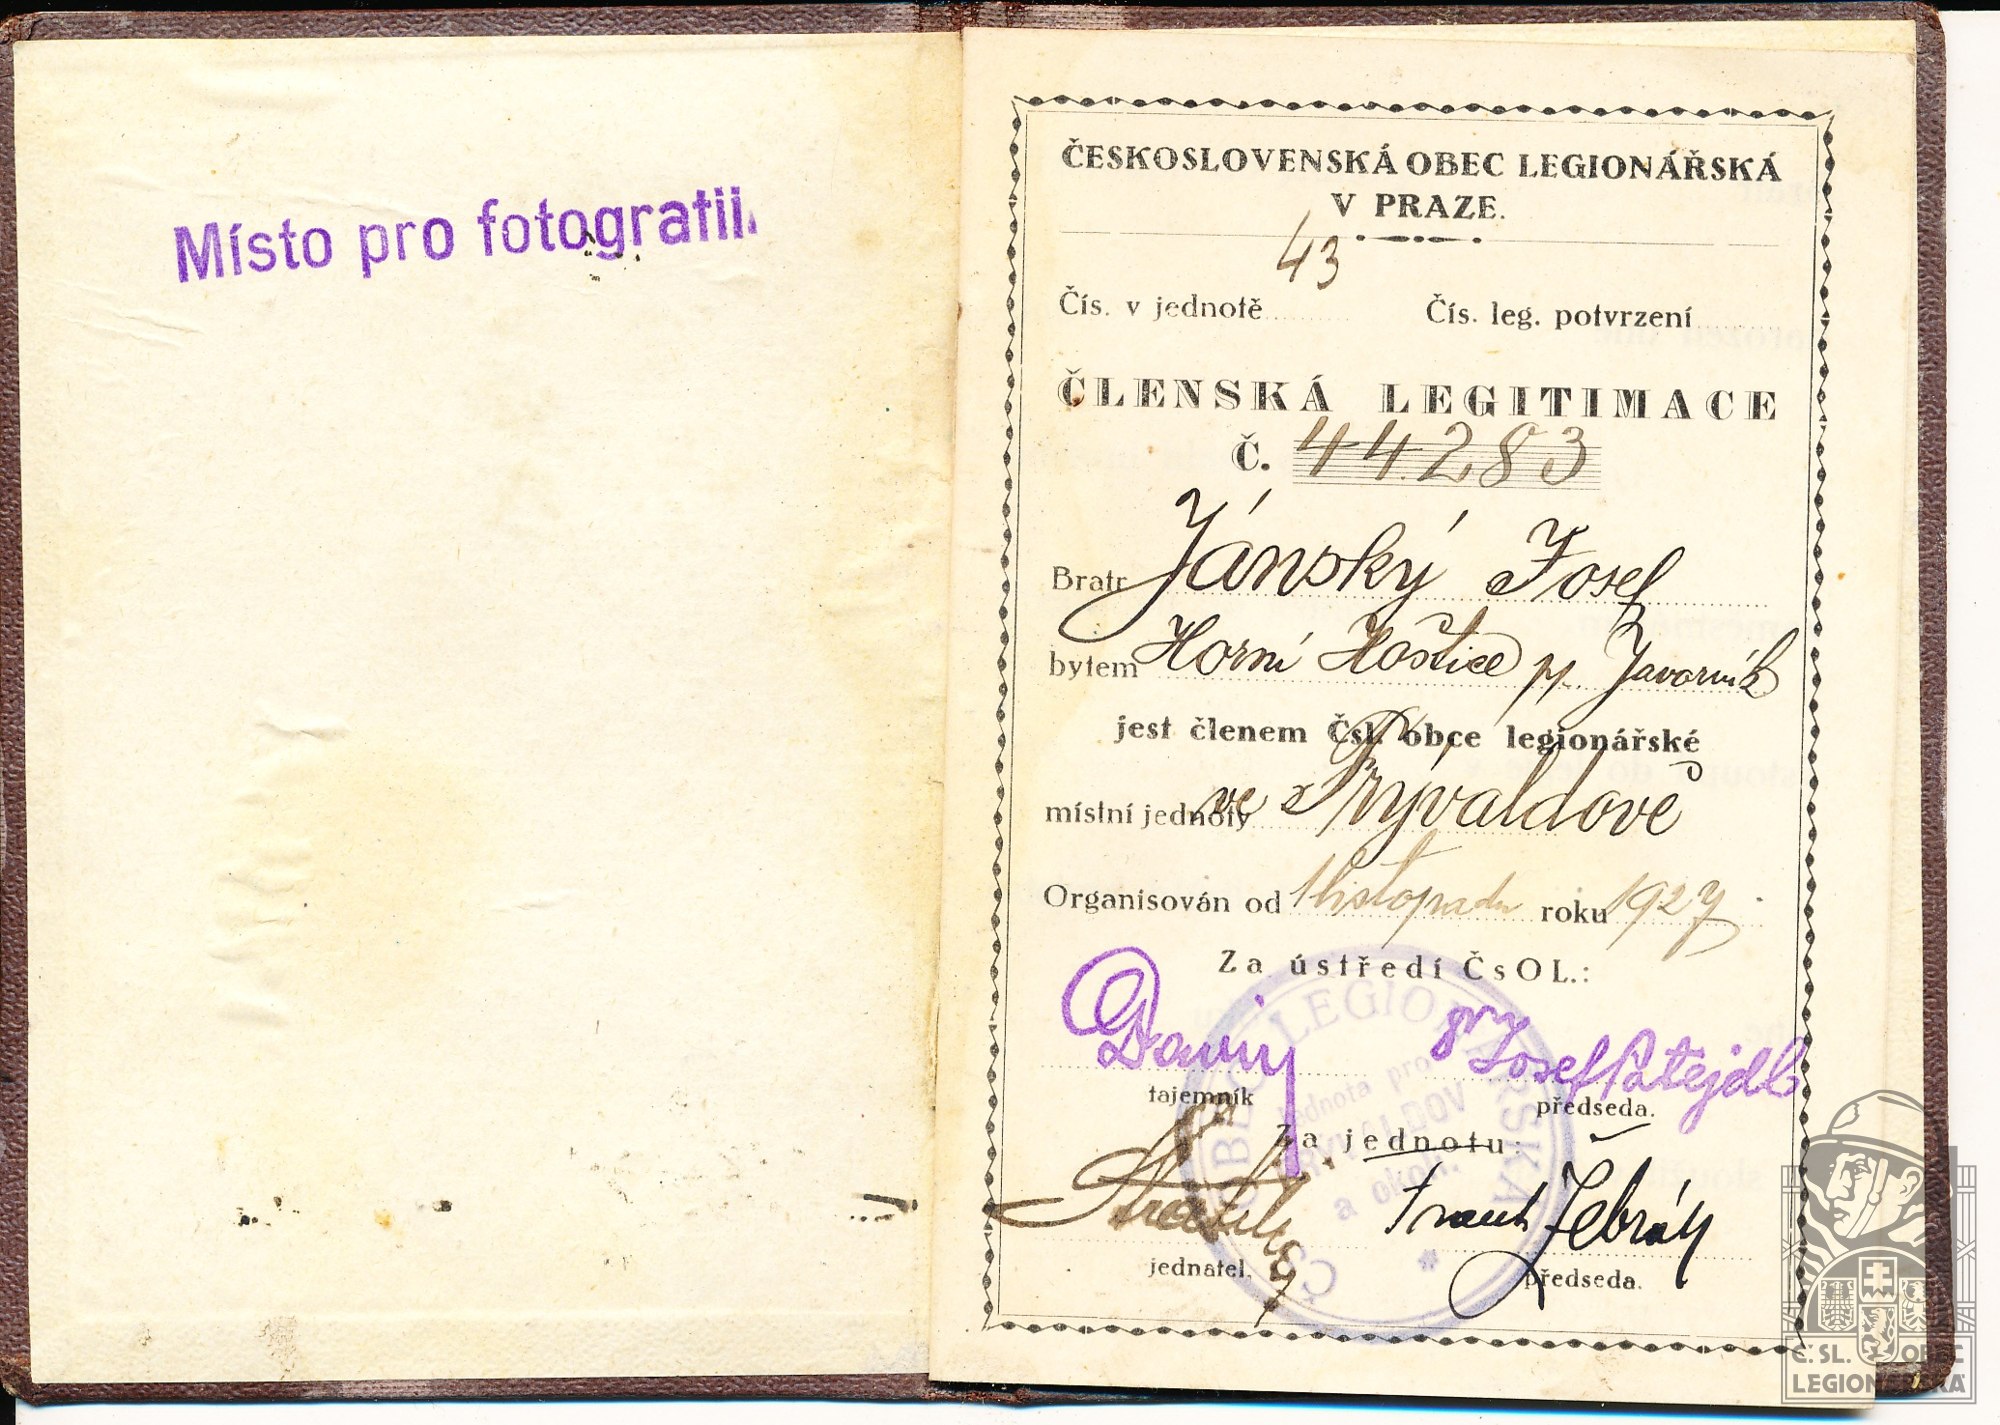 Místo pro fotografii.
ČESKOSLOVENSKÁ OBEC LEGIONÁŘSKÁ
V PRAZE.
Čís. v jednotě 43 Čís. leg. potvrzení
ČLENSKÁ LEGITIMACE
Č. 44.283
Bratr Jánský Josef
bytem Horní Hoštice p. Javorník
jest členem Čsl. obce legionářské
místní jednoty ve Frývaldově
Organisován od 1 listopadu roku 1927
Za ústředí ČsOL.:
Josef Patejdl
tajemník předseda.
Za jednotu:
jednatel. předseda.
ČS. OBEC LEGIONÁŘSKÁ
Jednota pro
FRÝVALDOV
a okolí.
Č. SL. OBEC
LEGIONÁŘSKÁ